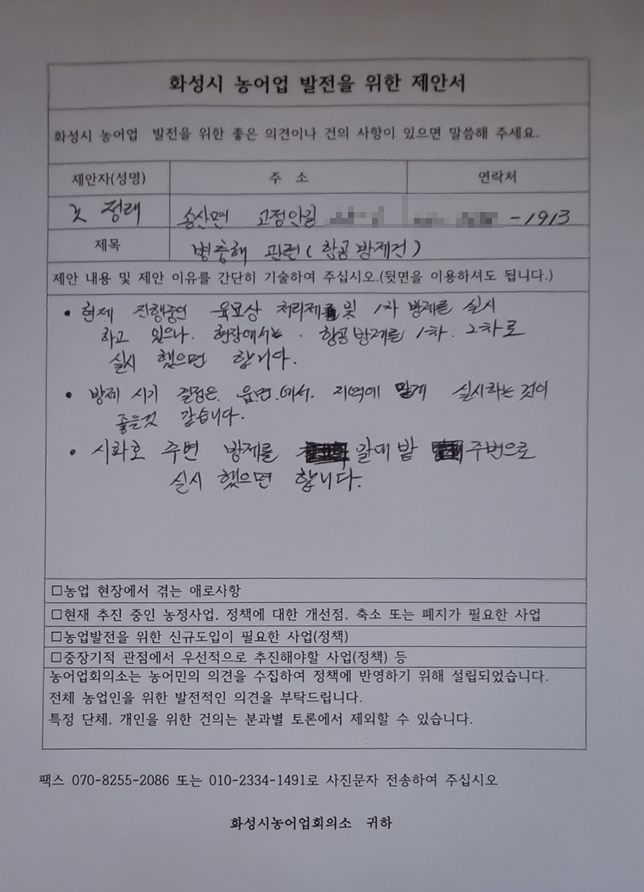 화성시 농어업 발전을 위한 제안서
화성시 농어업 발전을 위한 좋은 의견이나 건의 사항이 있으면 말씀해 주세요.
제안자(성명) 주 소 연락처
정래 송산면 고정안길 -1913
제목 병충해 관련(항공방제건)
제안 내용 및 제안 이유를 간단히 기술하여 주십시오.(뒷면을 이용하셔도 됩니다.)
• 현제 진행중인 육묘상 처리제 및 1차 방제를 실시
하고 있으나. 현장에서는 . 항공방제를 1차. 2차로
실시 했으면 합니다.
• 방제 시기 결정은 읍면.에서. 지역에 맞게 실시하는것이
좋을것 같습니다.
• 시화호 주변 방제를 갈대밭 주변으로
실시 했으면 합니다.
□농업 현장에서 겪는 애로사항
□현재 추진 중인 농정사업, 정책에 대한 개선점, 축소 또는 폐지가 필요한 사업
□농업발전을 위한 신규도입이 필요한 사업(정책)
□중장기적 관점에서 우선적으로 추진해야할 사업(정책) 등
농어업회의소는 농어민의 의견을 수집하여 정책에 반영하기 위해 설립되었습니다.
전체 농업인을 위한 발전적인 의견을 부탁드립니다.
특정 단체, 개인을 위한 건의는 분과별 토론에서 제외할 수 있습니다.
팩스 070-8255-2086 또는 010-2334-1491로 사진문자 전송하여 주십시오
화성시농어업회의소 귀하